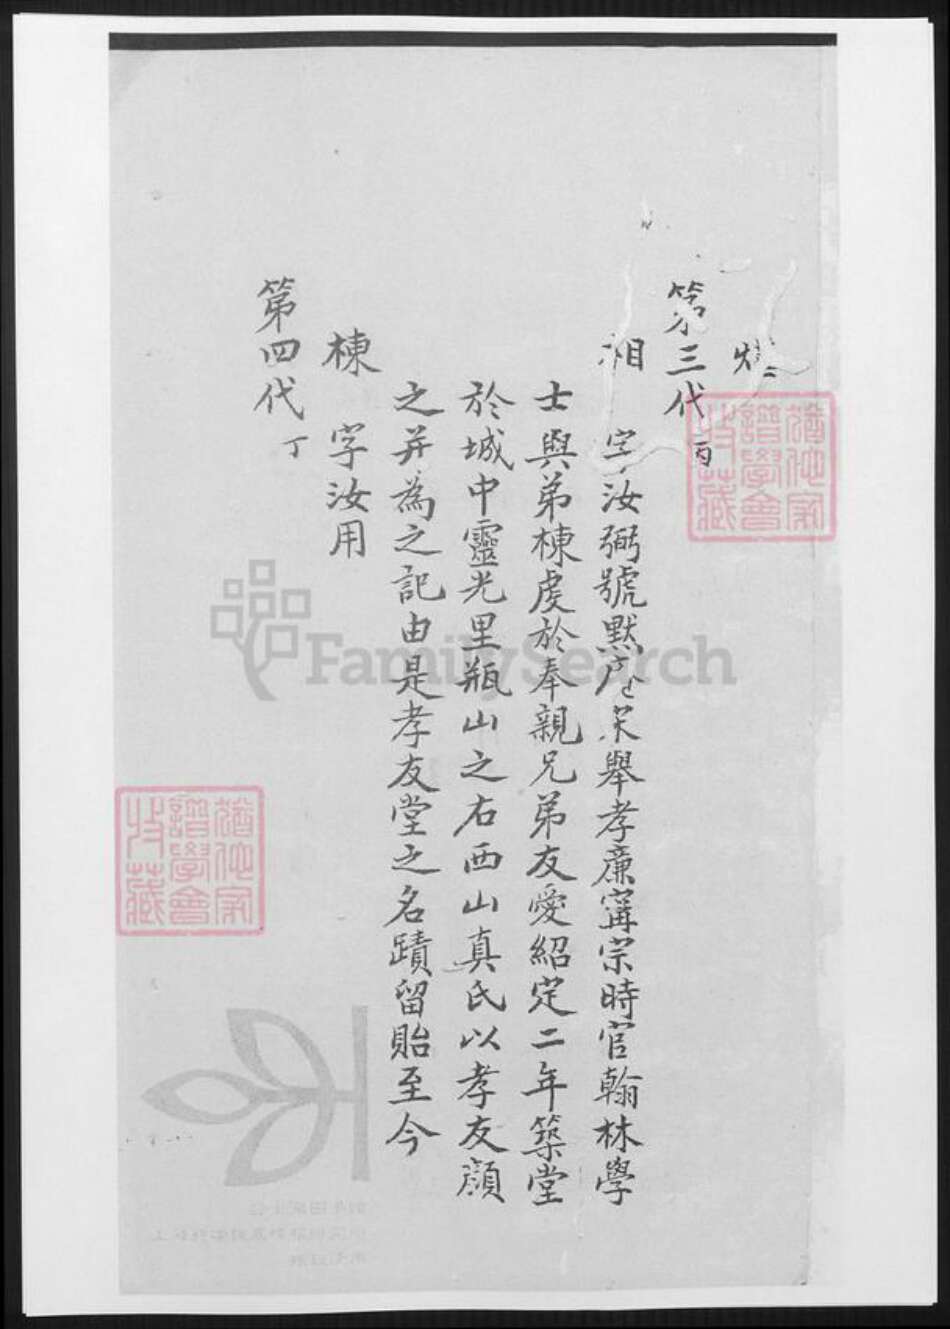 第三代 丙
湘 字汝弼號默庵宋舉孝廉寧宗時官翰林學
士與弟棟虔於奉親兄弟友愛紹定二年築堂
於城中靈光里瓶山之右西山真氏以孝友顏
之并為之記由是孝友堂之名蹟留貽至今
棟 字汝用
第四代 丁
FamilySearch